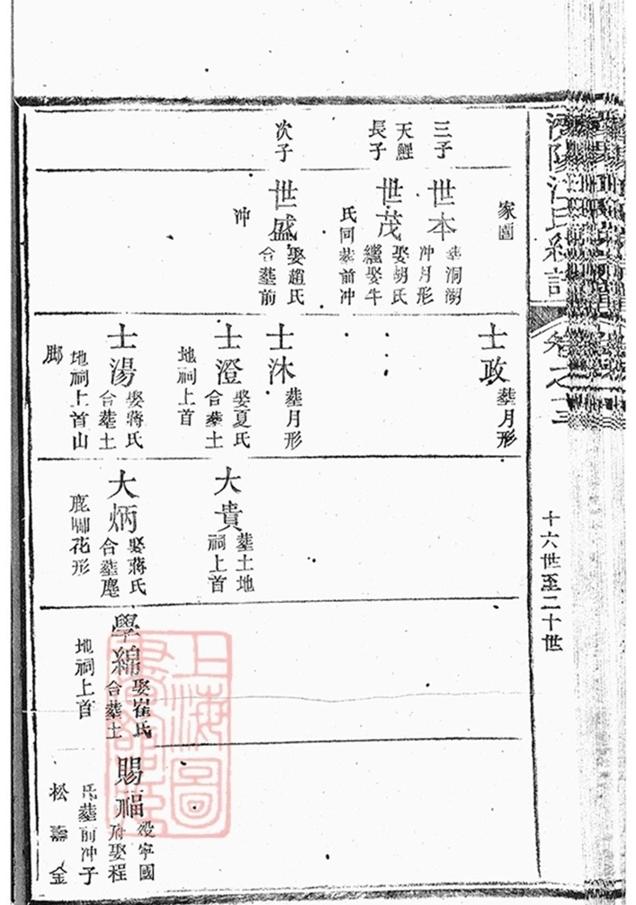 陽江氏統譜
卷之
十六世至二十世
家園
三子
世本
葬洞湖
冲月形
天鯉
長子
世茂
娶胡氏
繼娶牛
氏同葬前冲
次子
世盛
娶趙氏
合葬前
冲
士政
葬月形
士沐
葬月形
士澄
娶夏氏
合葬土
地祠上首
士湯
娶蔣氏
合葬土
地祠上首山
脚
大貴
葬土地
祠上首
大炳
娶蔣氏
合葬麈
鹿啣花形
學綿
娶崔氏
合葬土
地祠上首
賜福
歿寧國
府娶程
氏葬前冲子
松 金
上海圖
書館藏